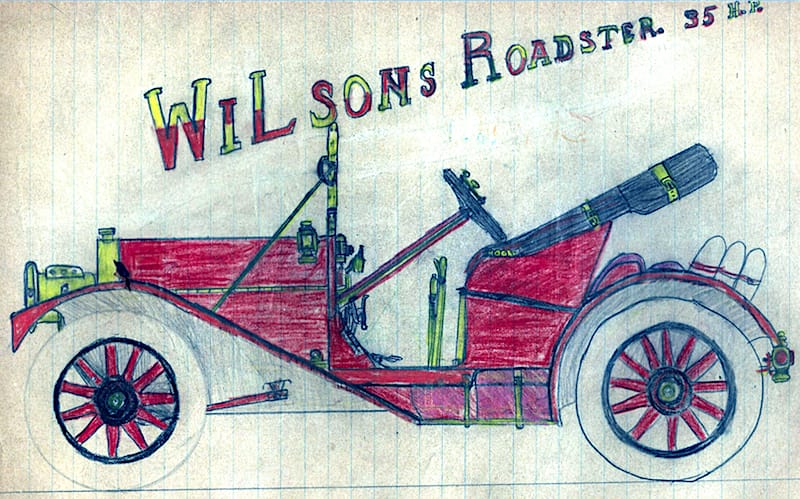 WILSONS ROADSTER. 35 H.P.